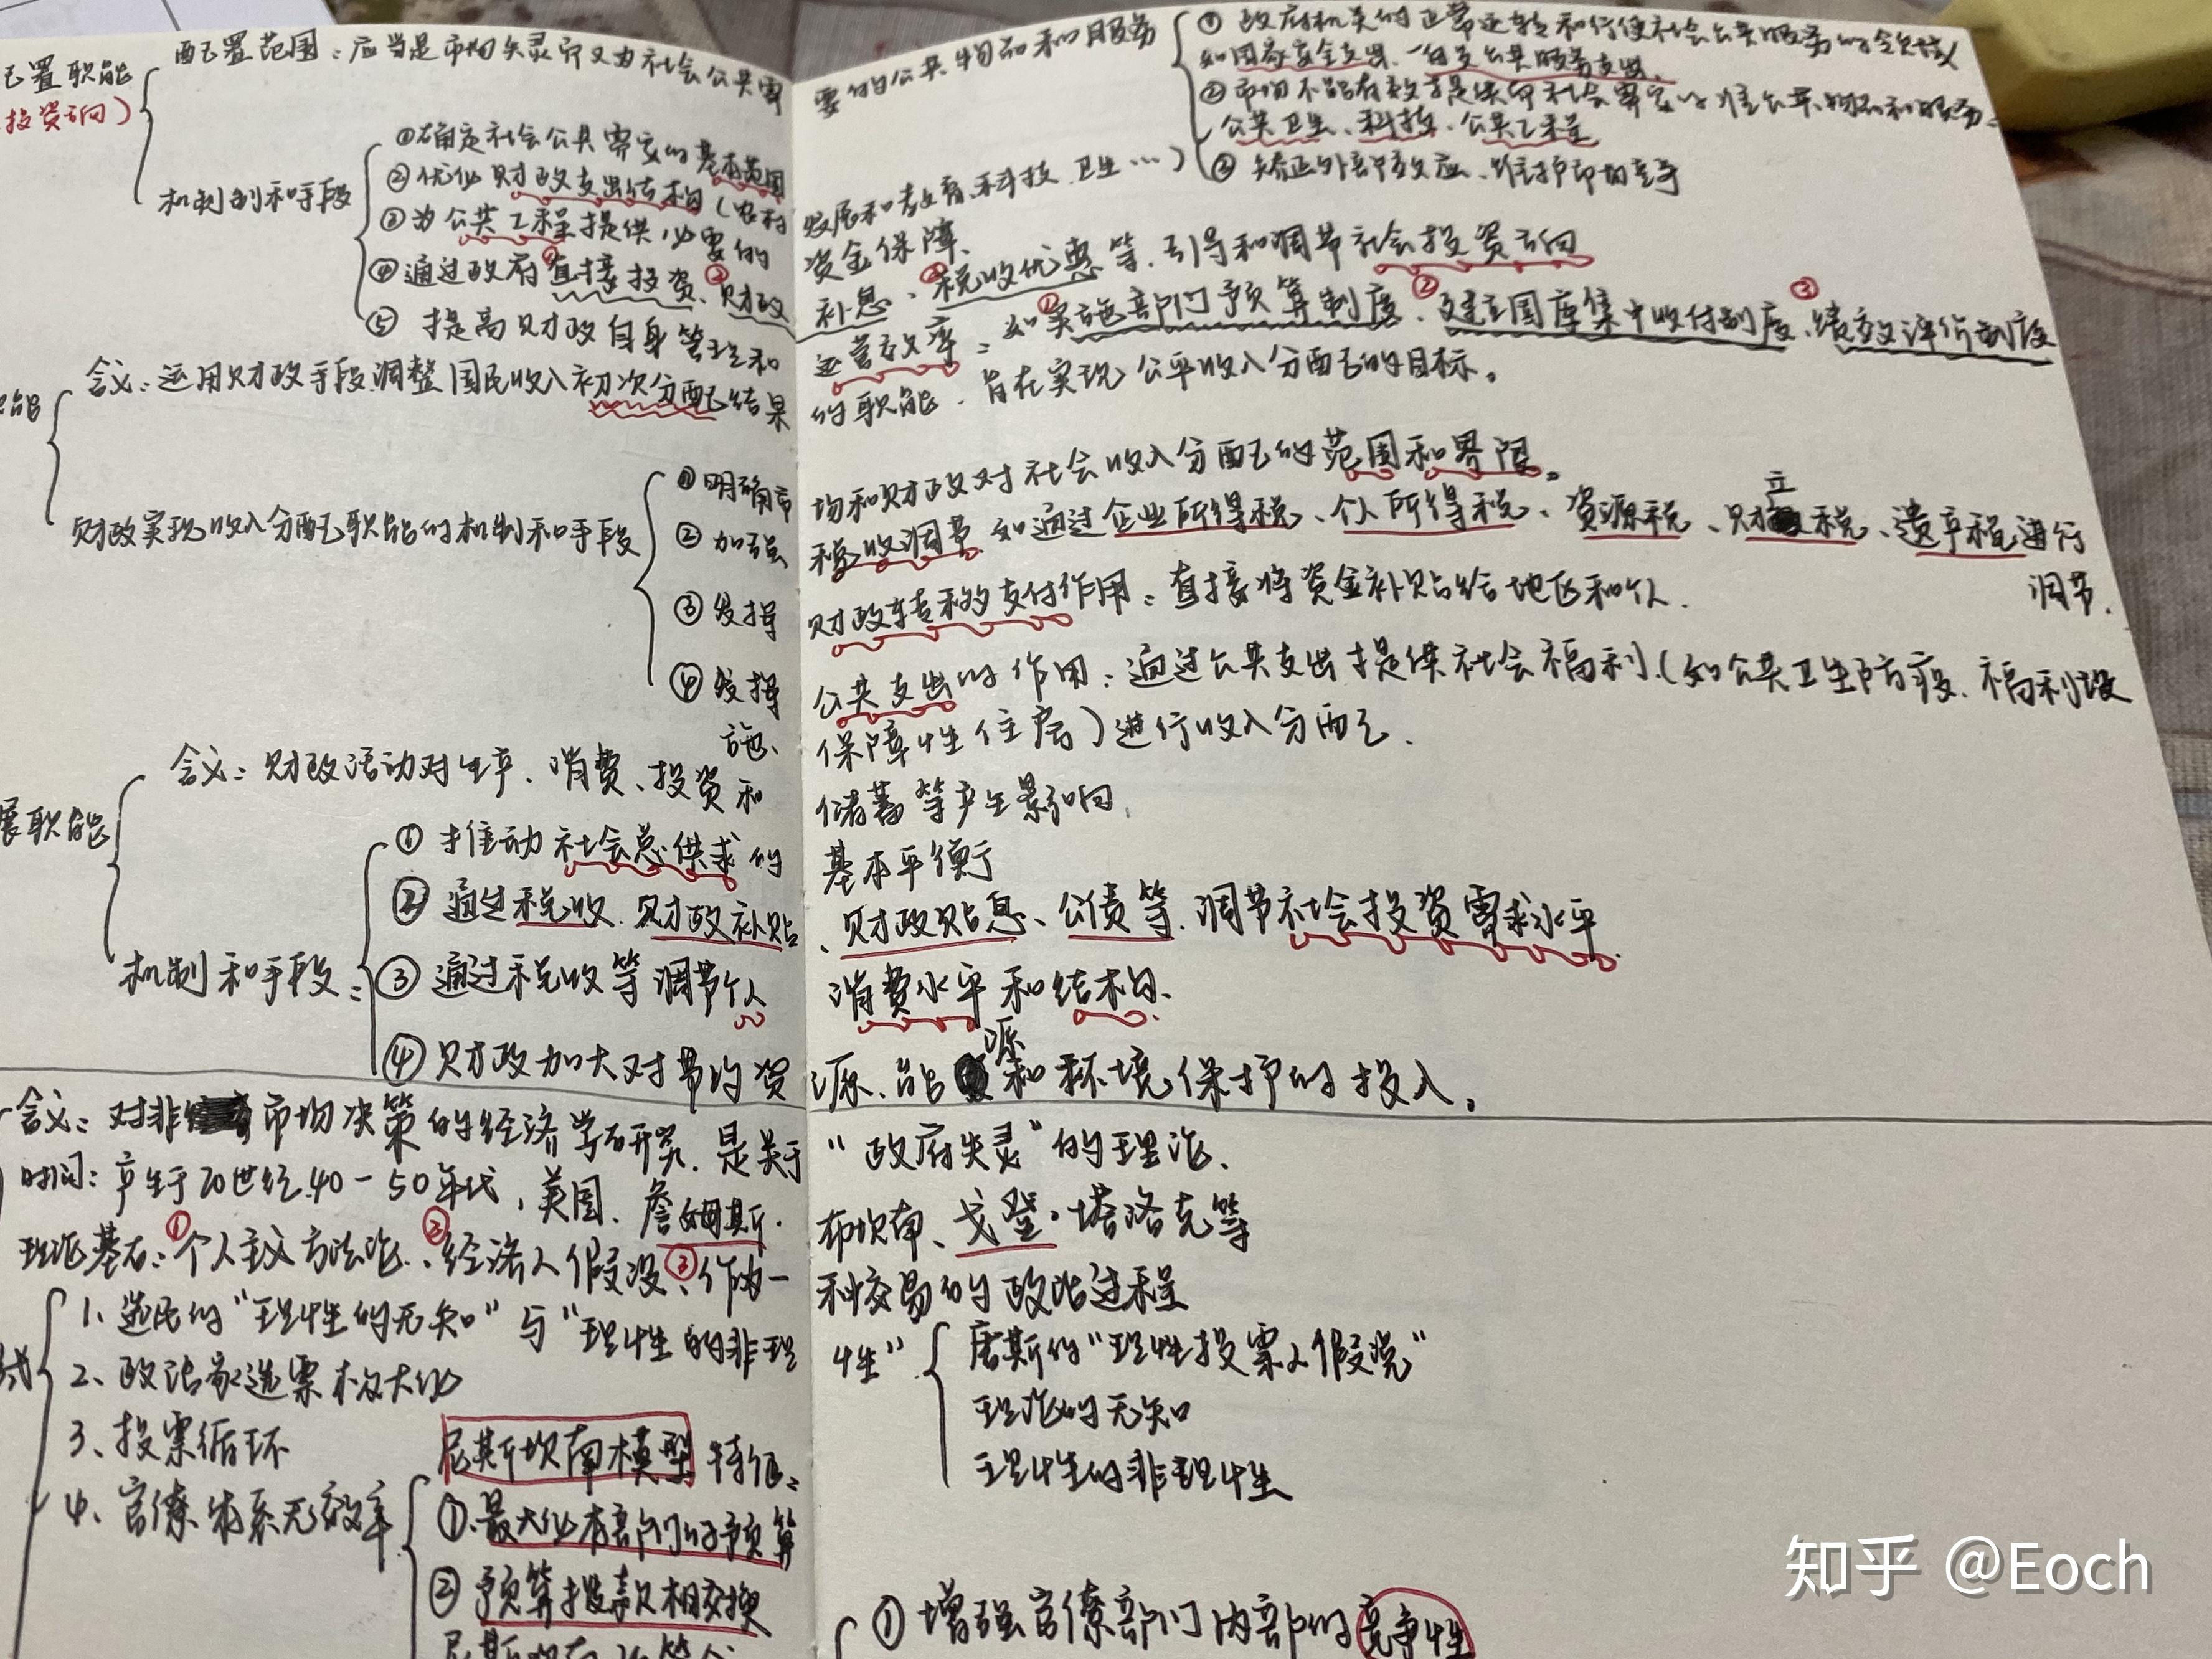 配置范围：应当是市场失灵而又为社会公共需要的公共物品和服务
置职能
投资方向）
①政府机关的正常运转和行使社会公共服务的
如国家安全支出、一般公共服务支出、
②市场不能有效提供而社会需要的准公共物品和服务：
公共卫生、科技、公共工程
③矫正外部效应、维护市场竞争
机制和手段
①确定社会公共需要的基本范围
②优化财政支出结构（农村发展和教育、科技、卫生…）
③为公共工程提供必要的资金保障、
④通过政府①直接投资、②财政补息、③税收优惠等，引导和调节社会投资方向
⑤提高财政自身管理和运营效率：如①实施部门预算制度、②建立国库集中收付制度、③绩效评价制度
职能
含义：运用财政手段调整国民收入初次分配结果的职能，旨在实现公平收入分配的目标。
财政实现收入分配职能的机制和手段
①明确市场和财政对社会收入分配的范围和界限。
②加强税收调节 如通过企业所得税、个人所得税、资源税、财产税、遗产税进行调节.
③发挥财政转移支付作用：直接将资金补贴给地区和个人.
④发挥公共支出的作用：通过公共支出提供社会福利（如公共卫生防疫、福利设施、保障性住房）进行收入分配.
展职能
含义：财政活动对生产、消费、投资和储蓄等产生影响.
机制和手段：
①推动社会总供求的基本平衡
②通过税收、财政补贴、财政贴息、公债等，调节社会投资需求水平
③通过税收等调节个人消费水平和结构、
④财政加大对节约资源、能源和环境保护的投入。
含义：对非市场决策的经济学研究，是关于“政府失灵”的理论、
时间：产生于20世纪40-50年代，美国、詹姆斯·布坎南、戈登·塔洛克等
理论基石：①个人主义方法论、②经济人假设、③作为一种交易的政治过程
1、选民的“理性的无知”与“理性的非理性”
唐斯的“理性投票人假说”
理论的无知
理性的非理性
2、政治家选票极大化
3、投票循环
4、官僚体系无效率
尼斯坎南模型特征：
①最大化本部门的预算
②预算拨款相交换
①增强官僚部门内部的竞争性
知乎 @Eoch